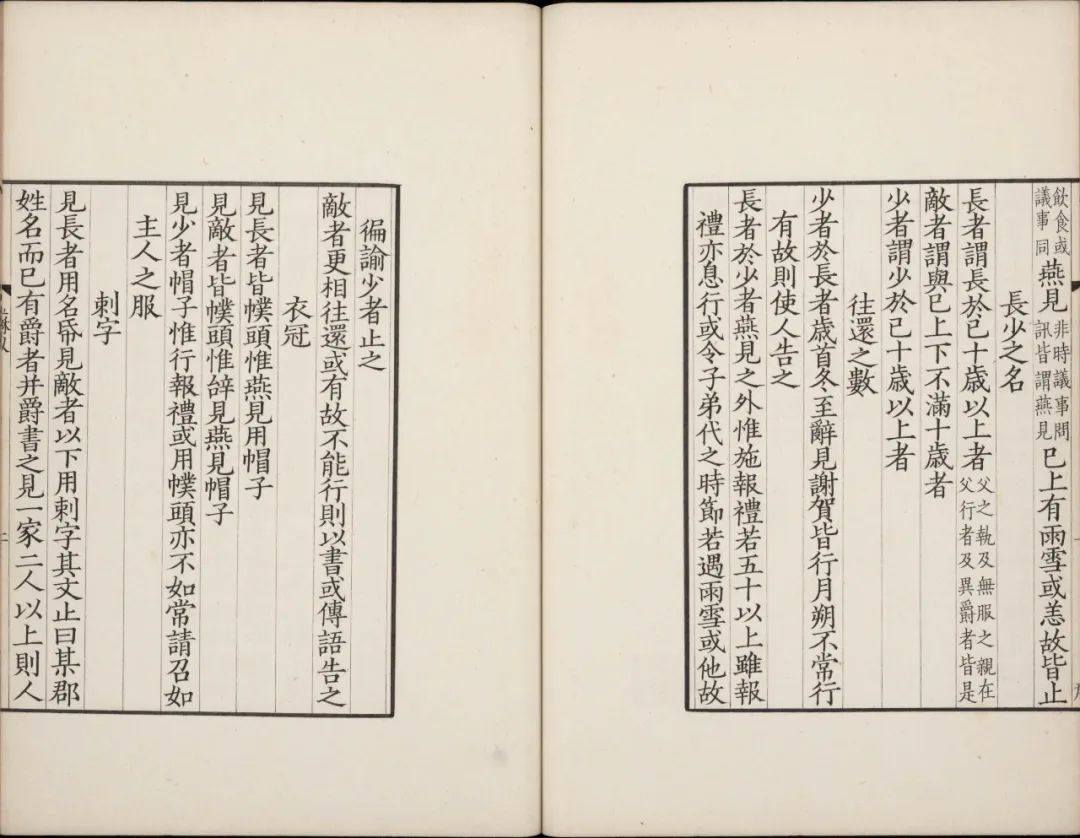 飲食或議事同燕見非時議事問訊皆謂燕見已上有雨雪或恙故皆止
長少之名
長者謂長於己十歲以上者父之執及無服之親在父行者及異爵者皆是
敵者謂與己上下不滿十歲者
少者謂少於己十歲以上者
往還之數
少者於長者歲首冬至辭見謝賀皆行月朔不常行
有故則使人告之
長者於少者燕見之外惟施報禮若五十以上雖報
禮亦息行或令子弟代之時節若遇雨雪或他故
徧諭少者止之
敵者更相往還或有故不能行則以書或傳語告之
衣冠
見長者皆幞頭惟燕見用帽子
見敵者皆幞頭惟辝見燕見帽子
見少者帽子惟行報禮或用幞頭亦不如常請召如
主人之服
刺字
見長者用名帋見敵者以下用刺字其文止曰某郡
姓名而已有爵者并爵書之見一家二人以上則人